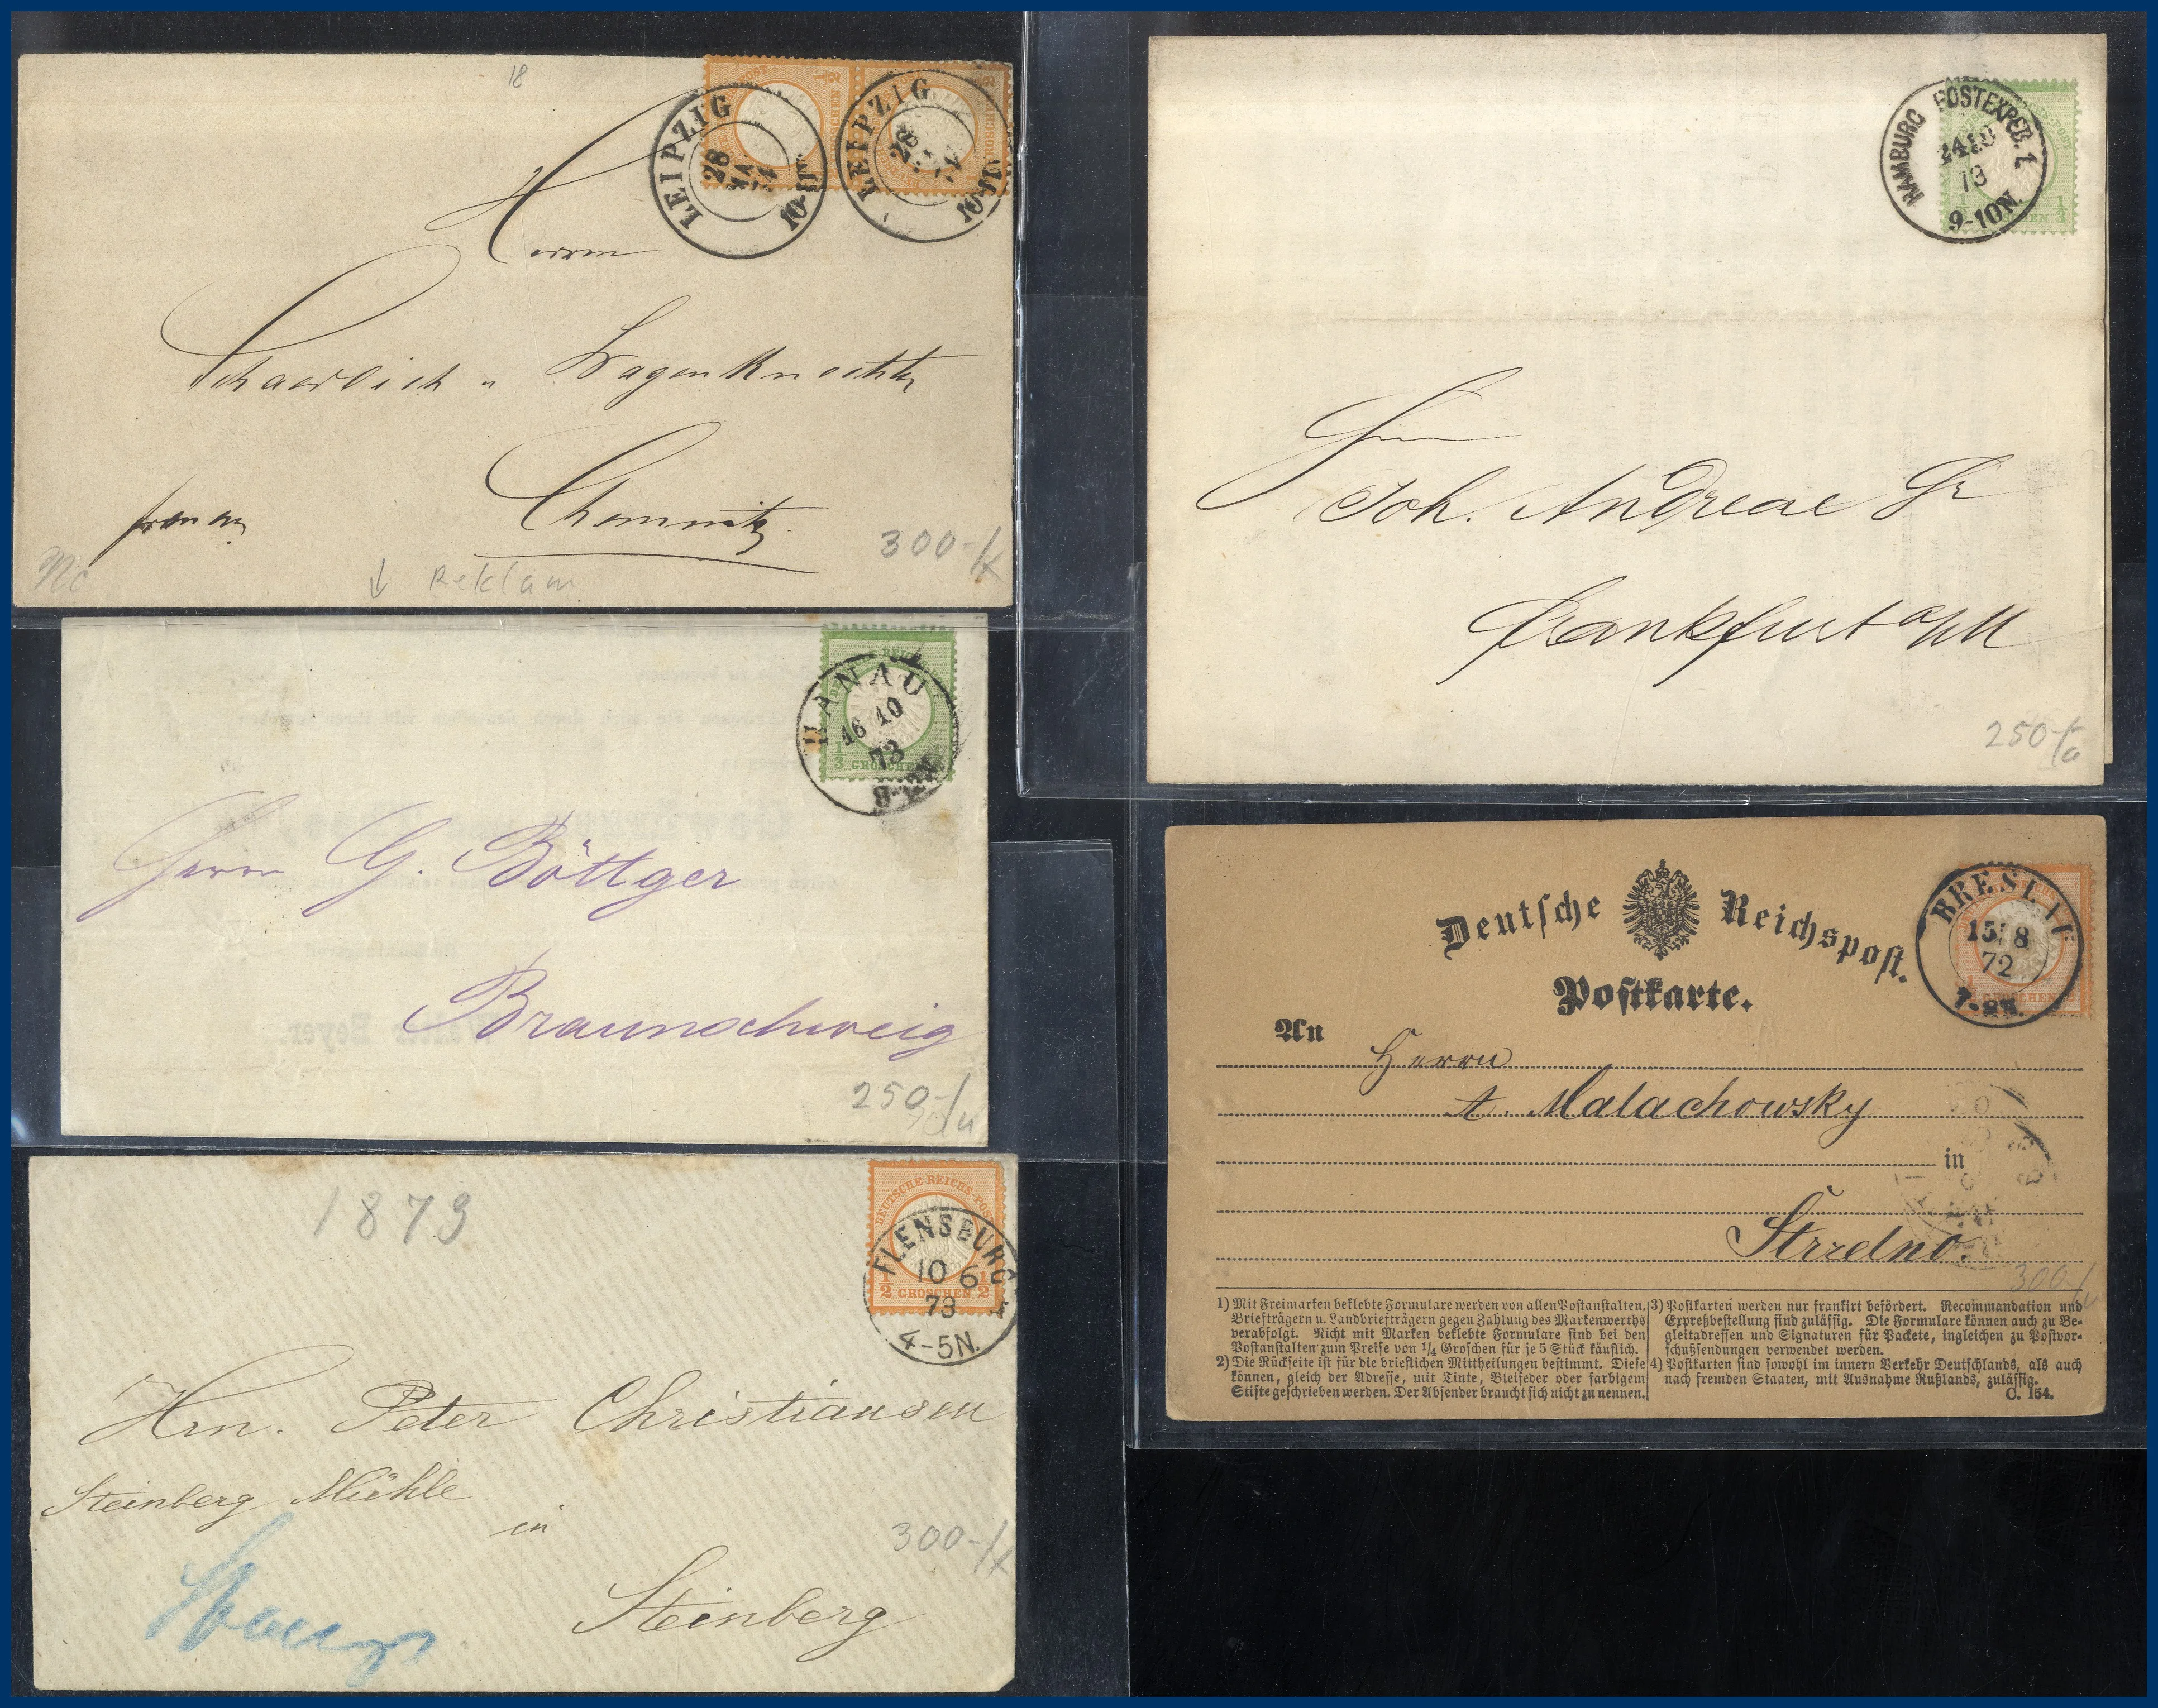 18
LEIPZIG
28
10-11
LEIPZIG
28
10-11
Herrn
Chemnitz.
300-
↓ Reklam
DEUTSCHE REICHS-POST
HANAU
16 10
73
1/3 GROSCHEN
Herrn G. Böttger
Braunschweig
250-
1873
DEUTSCHE REICHS-POST
FLENSBURG
10 6
73
4-5N.
1/2 GROSCHEN 1/2
Hrn. Peter Christiansen
Steinberg Mühle
in
Steinberg
300-
HAMBURG POSTEXPED. 1
24 10
73
9-10N.
1/3
Joh. Andreae Sr
Frankfurt a/M
250-
Deutsche Reichspost.
Postkarte.
BRESLAU
15 8
72
7-8N.
An Herrn
A. Malachowsky
in
Strzelno.
300-
1) Mit Freimarken beklebte Formulare werden von allen Postanstalten,
Briefträgern u. Landbriefträgern gegen Zahlung des Markenwerths
verabfolgt. Nicht mit Marken beklebte Formulare sind bei den
Postanstalten zum Preise von 1/4 Groschen für je 5 Stück käuflich.
2) Die Rückseite ist für die brieflichen Mittheilungen bestimmt. Diese
können, gleich der Adresse, mit Tinte, Bleifeder oder farbigem
Stifte geschrieben werden. Der Absender braucht sich nicht zu nennen.
3) Postkarten werden nur frankirt befördert. Recommandation und
Expreßbestellung sind zulässig. Die Formulare können auch zu Be-
gleitadressen und Signaturen für Packete, ingleichen zu Postvor-
schußsendungen verwendet werden.
4) Postkarten sind sowohl im innern Verkehr Deutschlands, als auch
nach fremden Staaten, mit Ausnahme Rußlands, zulässig.
C. 154.